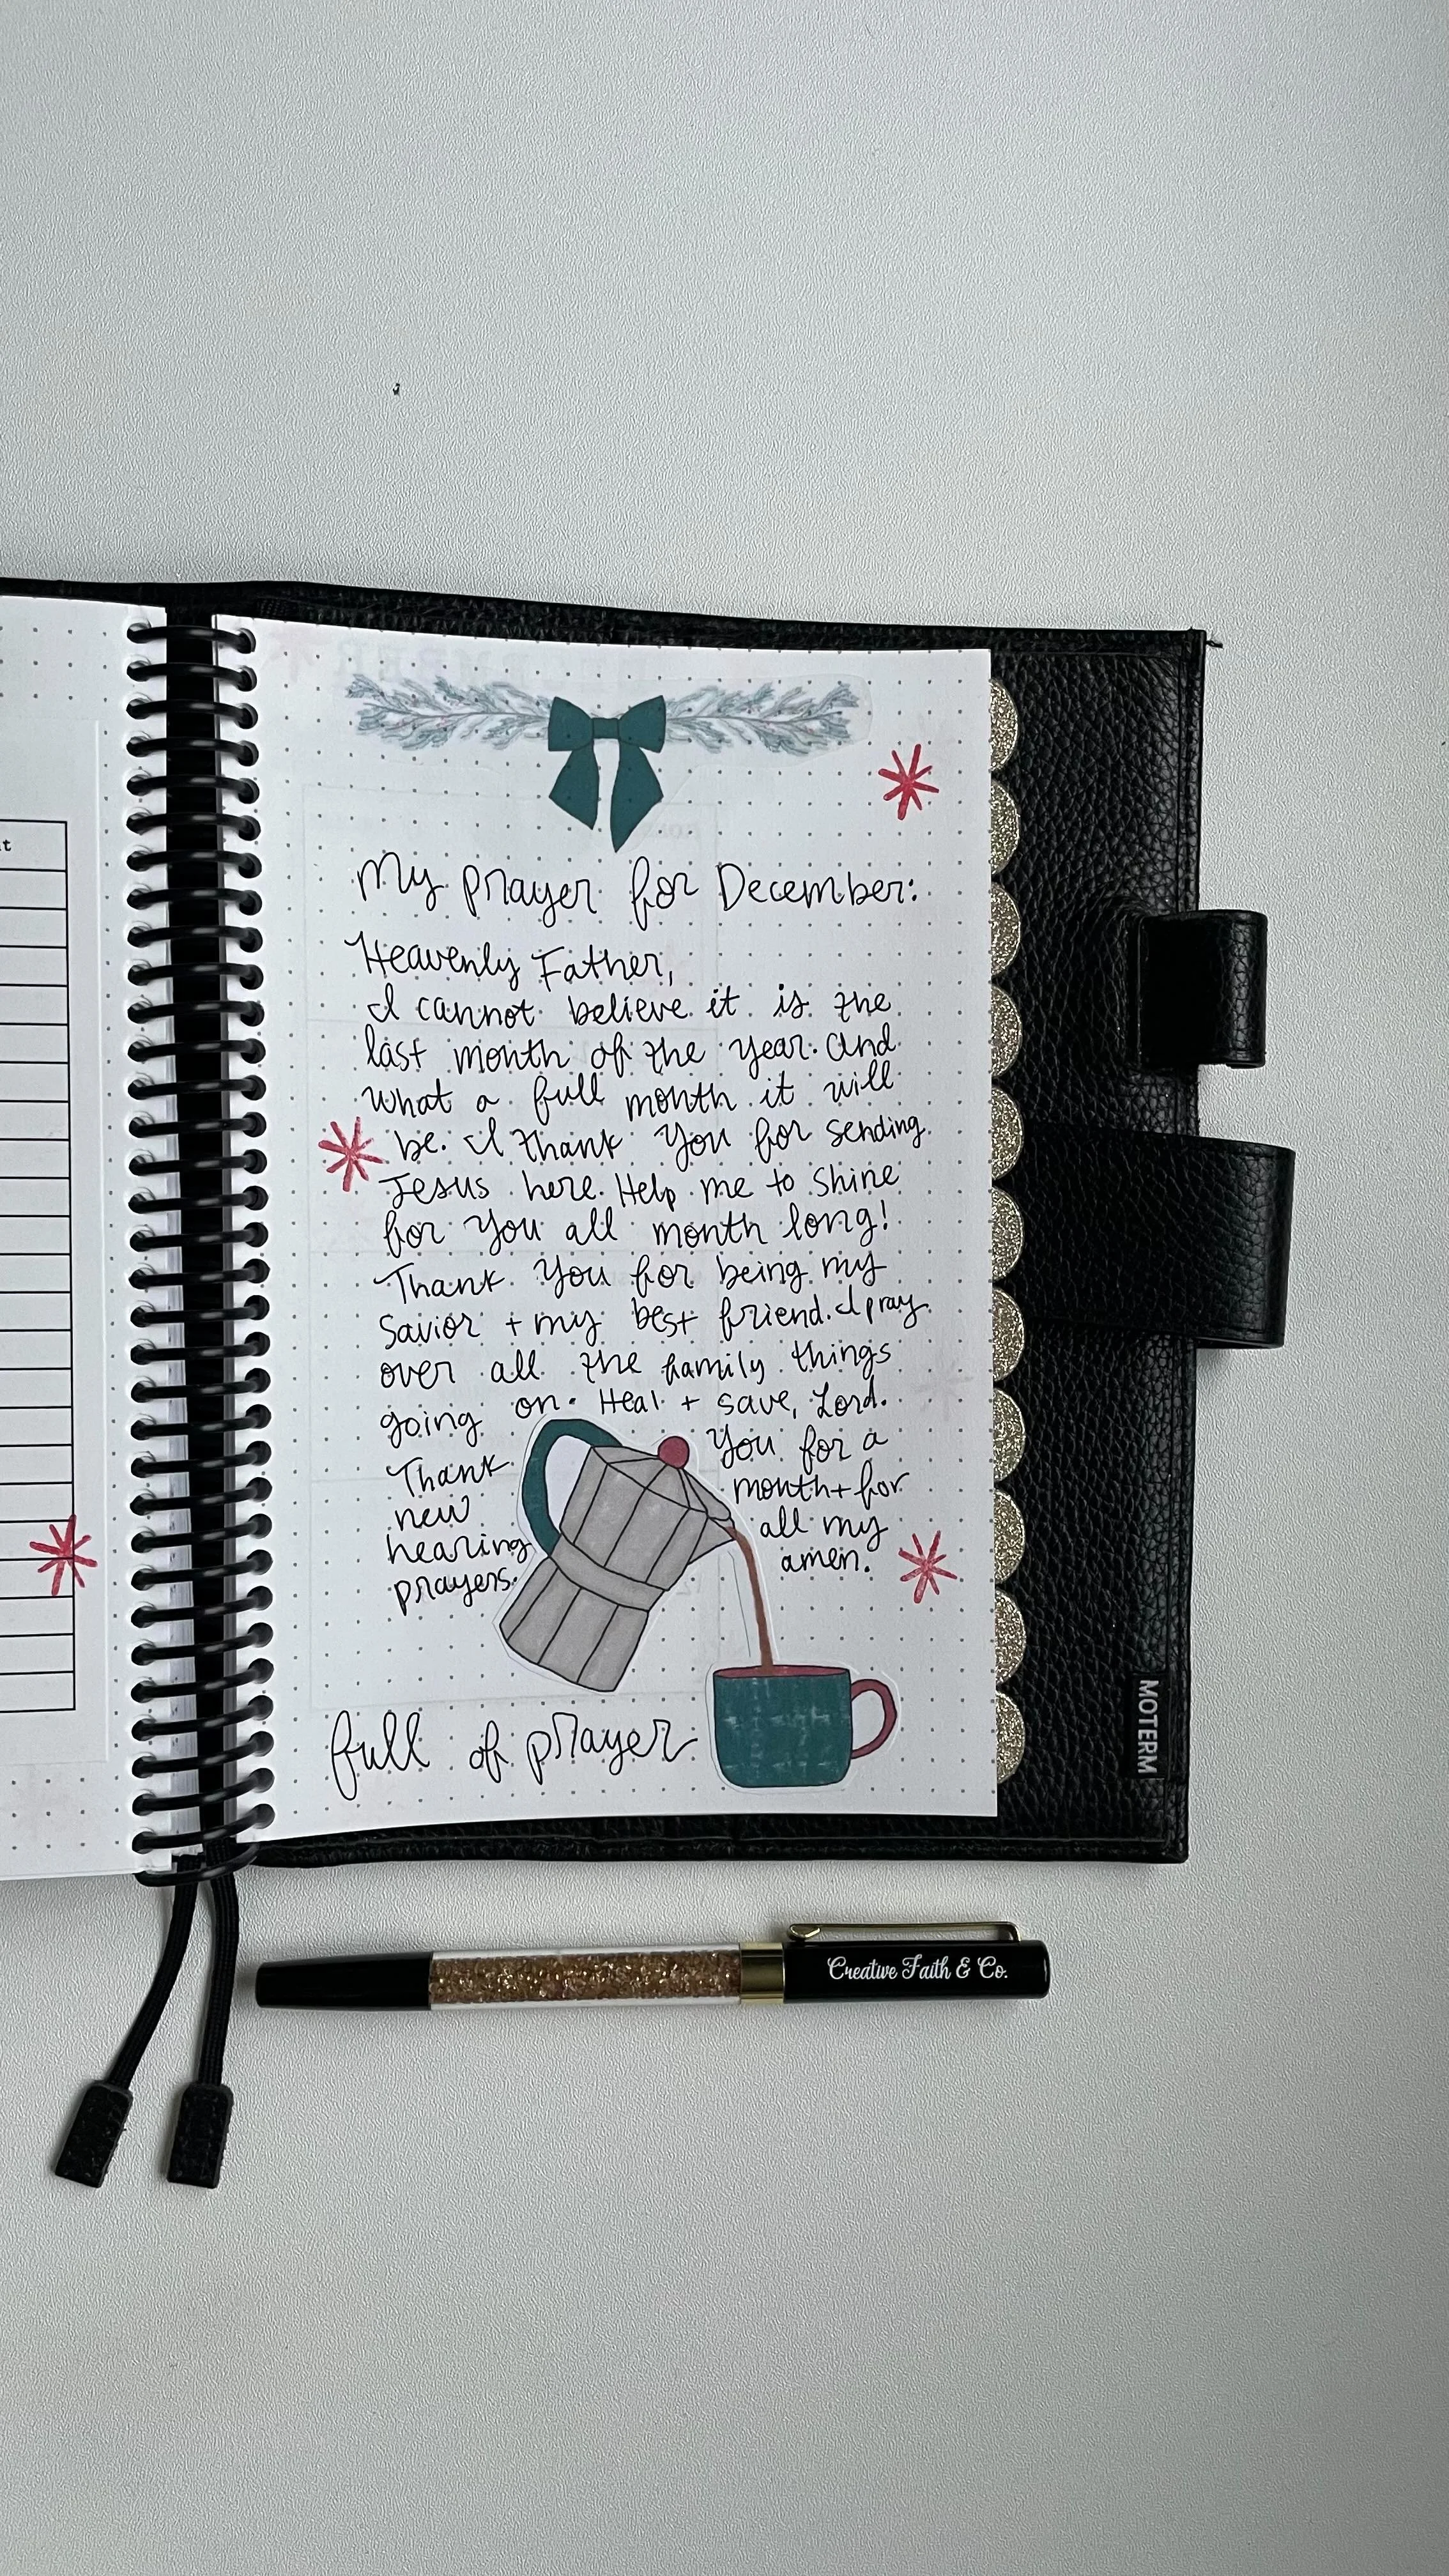 t
My prayer for December:
Heavenly Father,
I cannot believe it is the
last month of the year. And
what a full month it will
be. I thank You for sending
Jesus here. Help me to shine
for You all month long!
Thank You for being my
Savior + my best friend. I pray
over all the family things
going on. Heal + save, Lord.
Thank You for a
new month + for
hearing all my
prayers. amen.
full of prayer
MOTERM
Creative Faith & Co.